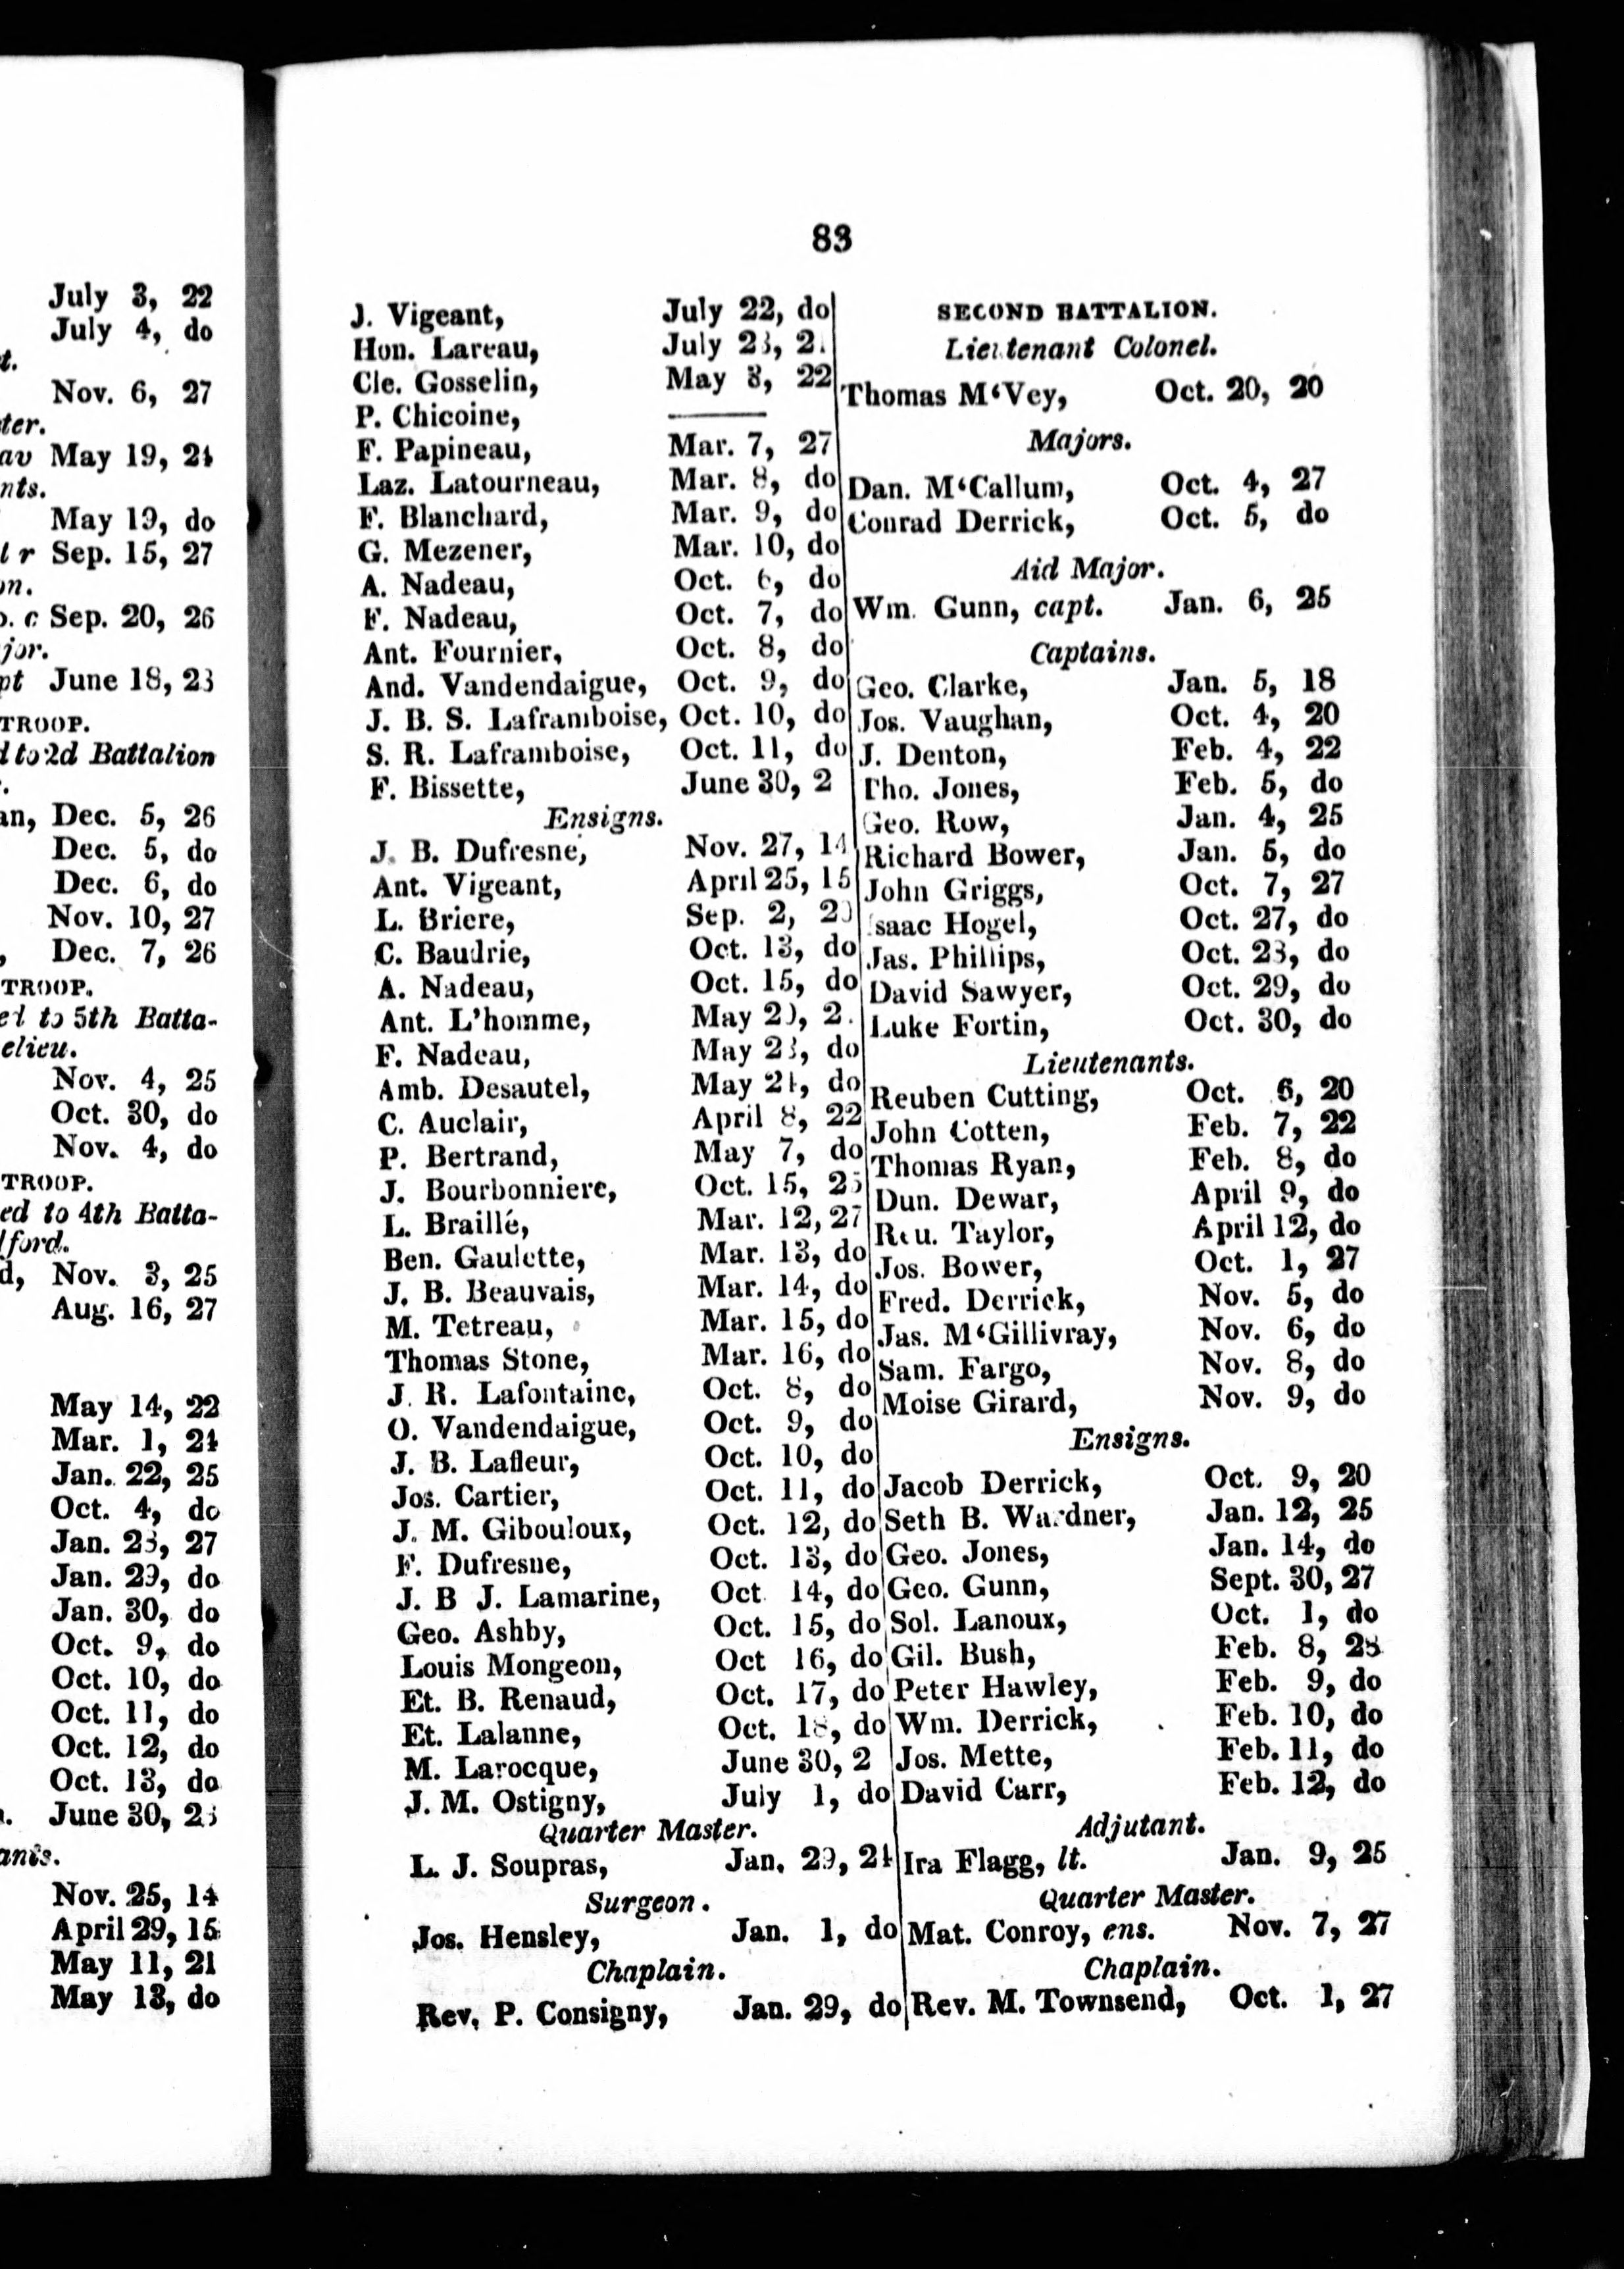 July 3, 22
July 4, do
t.
Nov. 6, 27
ter.
av May 19, 24
nts.
May 19, do
t r Sep. 15, 27
on.
o. c Sep. 20, 26
jor.
pt June 18, 23
TROOP.
d to 2d Battalion
an, Dec. 5, 26
Dec. 5, do
Dec. 6, do
Nov. 10, 27
, Dec. 7, 26
TROOP.
ed to 5th Batta-
elieu.
Nov. 4, 25
Oct. 30, do
Nov. 4, do
TROOP.
ed to 4th Batta-
ford.
d, Nov. 3, 25
Aug. 16, 27
May 14, 22
Mar. 1, 24
Jan. 22, 25
Oct. 4, do
Jan. 23, 27
Jan. 29, do
Jan. 30, do
Oct. 9, do
Oct. 10, do
Oct. 11, do
Oct. 12, do
Oct. 13, do
June 30, 23
ants.
Nov. 25, 14
April 29, 15
May 11, 21
May 13, do
83
J. Vigeant, July 22, do
Hon. Lareau, July 23, 2
Cle. Gosselin, May 3, 22
P. Chicoine, ———
F. Papineau, Mar. 7, 27
Laz. Latourneau, Mar. 8, do
F. Blanchard, Mar. 9, do
G. Mezener, Mar. 10, do
A. Nadeau, Oct. 6, do
F. Nadeau, Oct. 7, do
Ant. Fournier, Oct. 8, do
And. Vandendaigue, Oct. 9, do
J. B. S. Laframboise, Oct. 10, do
S. R. Laframboise, Oct. 11, do
F. Bissette, June 30, 2
Ensigns.
J. B. Dufresne, Nov. 27, 14
Ant. Vigeant, April 25, 15
L. Briere, Sep. 2, 20
C. Baudrie, Oct. 13, do
A. Nadeau, Oct. 15, do
Ant. L'homme, May 20, 2
F. Nadeau, May 23, do
Amb. Desautel, May 24, do
C. Auclair, April 8, 22
P. Bertrand, May 7, do
J. Bourbonniere, Oct. 15, 25
L. Braillé, Mar. 12, 27
Ben. Gaulette, Mar. 13, do
J. B. Beauvais, Mar. 14, do
M. Tetreau, Mar. 15, do
Thomas Stone, Mar. 16, do
J. R. Lafontaine, Oct. 8, do
O. Vandendaigue, Oct. 9, do
J. B. Lafleur, Oct. 10, do
Jos. Cartier, Oct. 11, do
J. M. Gibouloux, Oct. 12, do
F. Dufresne, Oct. 13, do
J. B J. Lamarine, Oct 14, do
Geo. Ashby, Oct. 15, do
Louis Mongeon, Oct 16, do
Et. B. Renaud, Oct. 17, do
Et. Lalanne, Oct. 18, do
M. Larocque, June 30, 2
J. M. Ostigny, July 1, do
Quarter Master.
L. J. Soupras, Jan. 29, 24
Surgeon.
Jos. Hensley, Jan. 1, do
Chaplain.
Rev. P. Consigny, Jan. 29, do
SECOND BATTALION.
Lieutenant Colonel.
Thomas M'Vey, Oct. 20, 20
Majors.
Dan. M'Callum, Oct. 4, 27
Conrad Derrick, Oct. 5, do
Aid Major.
Wm. Gunn, capt. Jan. 6, 25
Captains.
Geo. Clarke, Jan. 5, 18
Jos. Vaughan, Oct. 4, 20
J. Denton, Feb. 4, 22
Tho. Jones, Feb. 5, do
Geo. Row, Jan. 4, 25
Richard Bower, Jan. 5, do
John Griggs, Oct. 7, 27
Isaac Hogel, Oct. 27, do
Jas. Phillips, Oct. 28, do
David Sawyer, Oct. 29, do
Luke Fortin, Oct. 30, do
Lieutenants.
Reuben Cutting, Oct. 6, 20
John Cotten, Feb. 7, 22
Thomas Ryan, Feb. 8, do
Dun. Dewar, April 9, do
Reu. Taylor, April 12, do
Jos. Bower, Oct. 1, 27
Fred. Derrick, Nov. 5, do
Jas. M'Gillivray, Nov. 6, do
Sam. Fargo, Nov. 8, do
Moise Girard, Nov. 9, do
Ensigns.
Jacob Derrick, Oct. 9, 20
Seth B. Wardner, Jan. 12, 25
Geo. Jones, Jan. 14, do
Geo. Gunn, Sept. 30, 27
Sol. Lanoux, Oct. 1, do
Gil. Bush, Feb. 8, 28
Peter Hawley, Feb. 9, do
Wm. Derrick, Feb. 10, do
Jos. Mette, Feb. 11, do
David Carr, Feb. 12, do
Adjutant.
Ira Flagg, lt. Jan. 9, 25
Quarter Master.
Mat. Conroy, ens. Nov. 7, 27
Chaplain.
Rev. M. Townsend, Oct. 1, 27